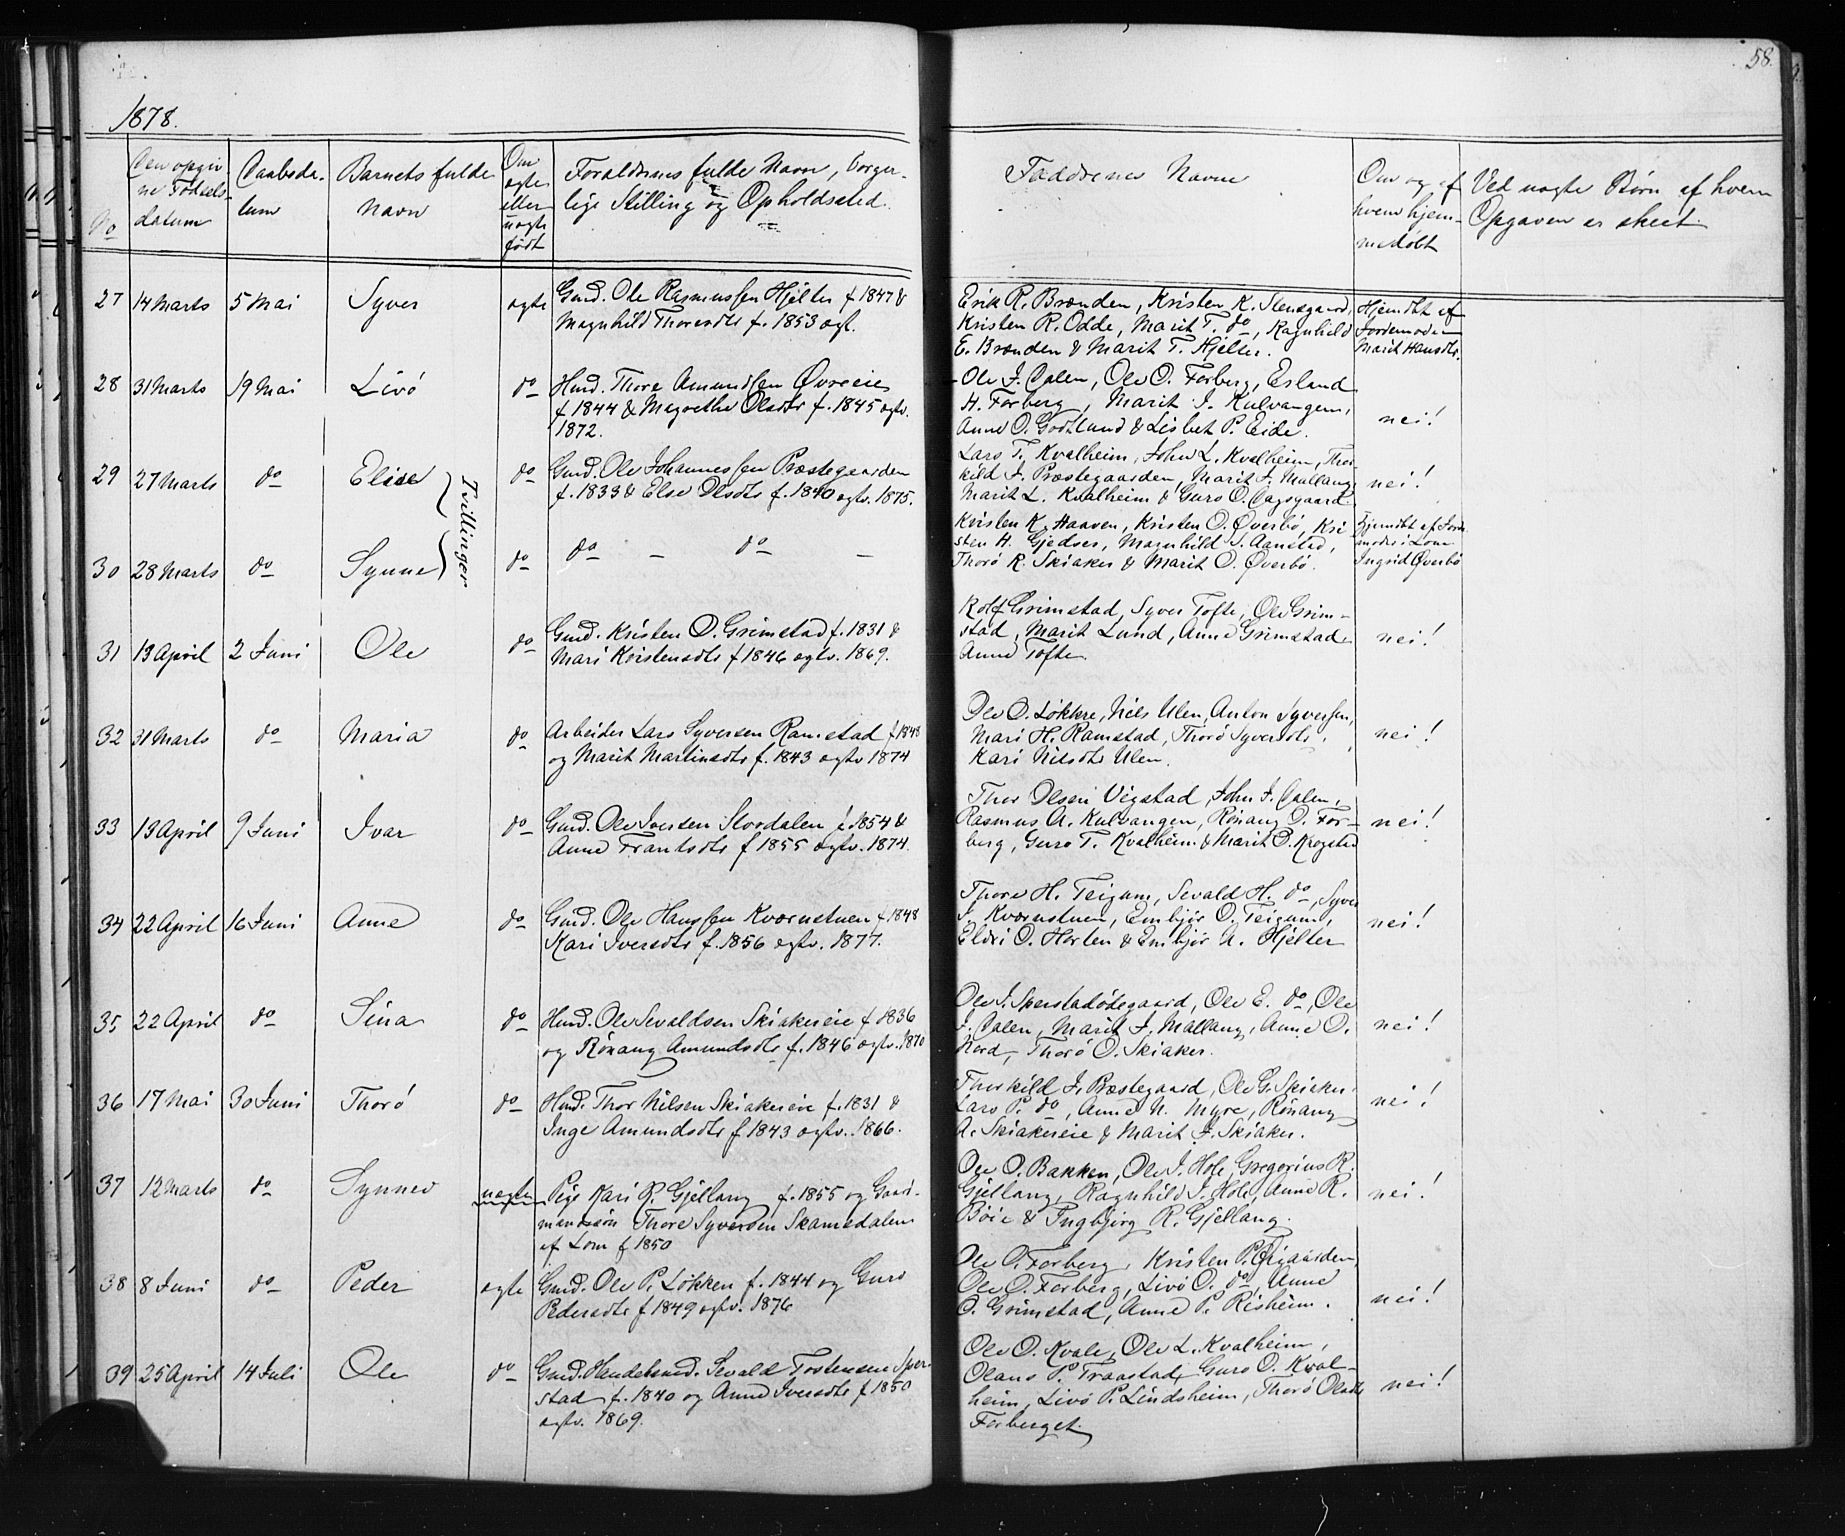 58.
1878.
No
Den opgiv-
ne Fødsels-
datum
Daabsda-
tum
Barnets fulde
Navn
Om
ægte
eller
uægte
født
Forældrenes fulde Navn, borger-
lige Stilling og Opholdssted.
Faddernes Navne
Om og af
hvem hjem-
medøbt
Ved uægte Børn af hvem
Opgaven er skeet.
27 14 Marts 5 Mai Syver ægte
Gmd. Ole Rasmussen Hjelter f 1847 &
Magnhild Thoresdtr f. 1853 ægt.
Erik R. Brænden, Kristen K. Stensgaard,
Kristen R. Odde, Marit T. do, Ragnhild
E. Brænden & Marit T. Hjelter.
Hjemdbt af
Jordemoder
Marit Hansdtr.
28 31 Marts 19 Mai Livø do
Hmd. Thore Amundsen Øvreeie
f 1844 & Magrethe Olsdtr f. 1845 ægtv.
1872.
Ole J. Dalen, Ole O. Forberg, Erland
H. Forberg, Marit J. Kulvangen,
Anne O. Godtlund & Lisbet P. Eide.
nei!
29 27 Marts do Elise do
Tvillinger
Gmd. Ole Johannessen Præstegaarden
f. 1833 & Else Olsdtr f. 1840 ægtv. 1875.
Lars T. Kvalheim, John L. Kvalheim, Thor-
kild J. Præstegaarden, Marit J. Mallang,
Marit L. Kvalheim & Guro O. Dagsgaard.
nei!
30 28 Marts do Synne do
do — do —
Kristen K. Haaven, Kristen O. Øverbø, Kri-
sten H. Gjedser, Magnhild S. Aanstad,
Thorø R. Skiaker & Marit O. Øverbø.
Hjemdbt af Jorde-
moder i Lom
Ingrid Øverbø
31 13 April 2 Juni Ole do
Gmd. Kristen O. Grimstad f. 1831 &
Mari Kristensdtr f 1846 ægtv. 1869.
Rolf Grimstad, Syver Tofte, Ole Grim-
stad, Marit Lund, Anne Grimstad
Anne Tofte.
nei!
32 31 Marts do Maria do
Arbeider Lars Syversen Ramstad f 1848
og Marit Martinsdtr f. 1843 ægtv 1874
Ole O. Løkkre, Nils Ulen, Anton Syversen,
Mari H. Ramstad, Thorø Syversdtr,
Kari Nilsdtr Ulen.
nei!
33 13 April 9 Juni Ivar do
Gmd. Ole Iversen Stordalen f 1854 &
Anne Frantsdtr f 1855 ægtv. 1874.
Thor Olsen Vigstad, John J. Dalen,
Rasmus A. Kulvangen, Rønaug O. For-
berg, Guro T. Kvalheim & Marit O. Krogstad
nei!
34 22 April 16 Juni Anne do
Gmd. Ole Hanssen Kværnstuen f 1848
Kari Iversdtr f. 1856 ægtv. 1877.
Thore H. Teigum, Sevald H. do, Syver
J. Kværnstuen, Embjør O. Teigum,
Eldri O. Horten & Embjør A. Hjelter
nei!
35 22 April do Sina do
Hmd. Ole Sevaldsen Skiakereie f 1836
og Rønaug Amundsdtr f. 1846 ægtv. 1870
Ole J. Sperstadødegaard, Ole E. do, Ole
J. Dalen, Marit J. Mallang, Anne O.
Nord, Thorø O. Skiaker.
nei!
36 17 Mai 30 Juni Thorø do
Hmd. Thor Nilsen Skiakereie f. 1831 &
Inge Amundsdtr f 1843 ægtv. 1866.
Thorkild J. Præstegaard, Ole G. Skiaker
Lars P. do, Anne N. Myre, Rønaug
A. Skiakereie & Marit J. Skiaker.
nei!
37 12 Marts do Synnev uægte
Pige Kari R. Gjellang f. 1855 og Gaard-
mandssøn Thore Syversen Skamsdalen
af Lom f 1850
Ole O. Bakken, Ole J. Hole, Gregorius R.
Gjellang, Ragnhild J. Hole, Anne R.
Böie & Ingbjørg R. Gjellang.
nei!
38 8 Juni do Peder ægte
Gmd. Ole P. Løkken f. 1844 og Guro
Pedersdtr f 1849 ægtv. 1876
Ole O. Forberg, Kristen P. Øigaarden,
Ole O. Forberg, Livø O. do, Anne
O. Grimstad, Anne P. Risheim.
nei!
39 25 April 14 Juli Ole do
Gmd. Handelsmd. Sevald Tostensen Sper-
stad f. 1840 og Anne Iversdtr f 1850
ægtv. 1869.
Ole O. Kvale, Ole L. Kvalheim,
Olaus P. Traastad, Guro O. Kval-
heim, Livø P. Lindsheim, Thorø Olsdtr
Forberget.
nei!